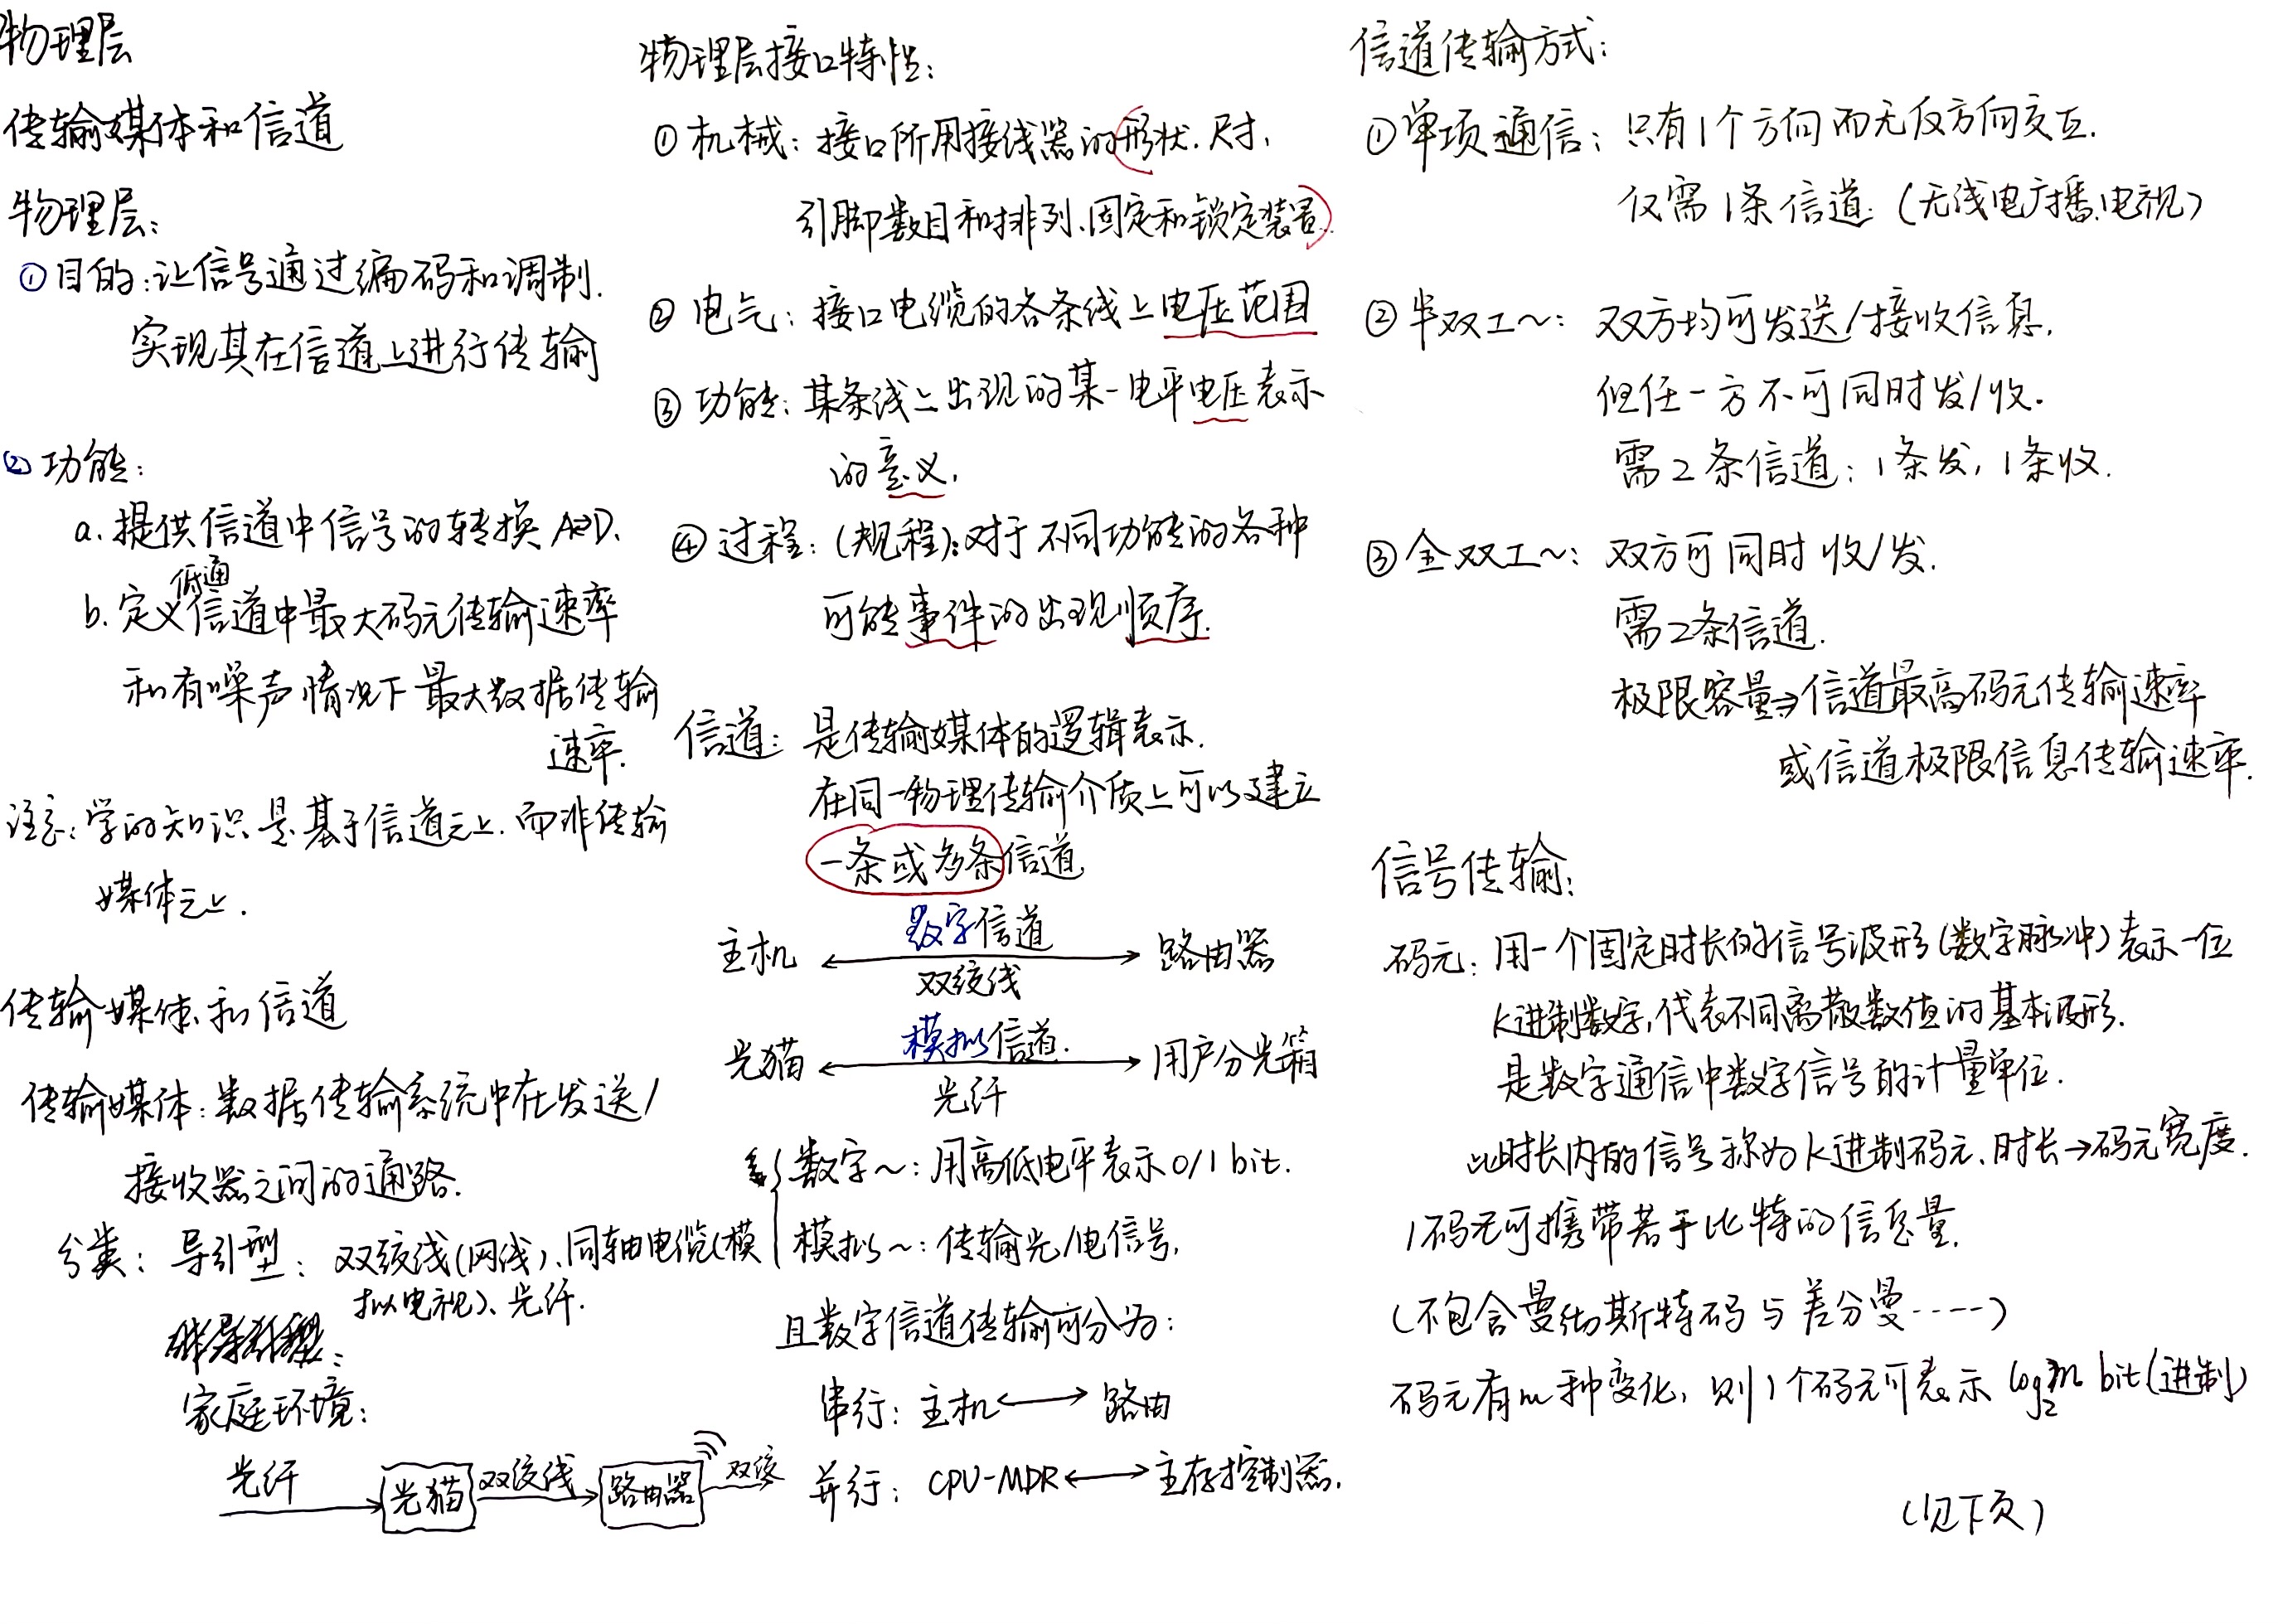 物理层
传输媒体和信道
物理层：
①目的：让信号通过编码和调制.
实现其在信道上进行传输
②功能：
a.提供信道中信号的转换A⇄D.
低通
b.定义信道中最大码元传输速率
和有噪声情况下最大数据传输
速率.
注意：学的知识是基于信道之上.而非传输
媒体之上.
传输媒体和信道
传输媒体：数据传输系统中在发送/
接收器之间的通路.
分类：导引型：双绞线(网线)、同轴电缆(模
拟电视)、光纤.
家庭环境：
光纤 光猫 双绞线 路由器 双绞
物理层接口特性：
①机械：接口所用接线器的形状.尺寸,
引脚数目和排列、固定和锁定装置.
②电气：接口电缆的各条线上电压范围
③功能：某条线上出现的某一电平电压表示
的意义.
④过程：(规程)：对于不同功能的各种
可能事件的出现顺序.
信道：是传输媒体的逻辑表示.
在同一物理传输介质上可以建立
一条或多条信道.
主机 数字信道 路由器
双绞线
光猫 模拟信道. 用户分光箱
光纤
数字～：用高低电平表示0/1 bit.
模拟～：传输光/电信号,
且数字信道传输可分为：
串行：主机⟷路由
并行：CPU-MDR⟷主存控制器.
信道传输方式：
①单项通信：只有1个方向而无反方向交互.
仅需1条信道.(无线电广播.电视)
②半双工～：双方均可发送/接收信息,
但任一方不可同时发/收.
需2条信道：1条发,1条收.
③全双工～：双方可同时收/发.
需2条信道.
极限容量⇒信道最高码元传输速率
或信道极限信息传输速率.
信号传输：
码元：用一个固定时长的信号波形(数字脉冲)表示一位
k进制数字,代表不同离散数值的基本波形.
是数字通信中数字信号的计量单位.
此时长内的信号称为k进制码元、时长→码元宽度.
1码元可携带若干比特的信息量.
(不包含曼彻斯特码与差分曼‥‥)
码元有m种变化,则1个码元可表示log₂m bit(进制)
(见下页)